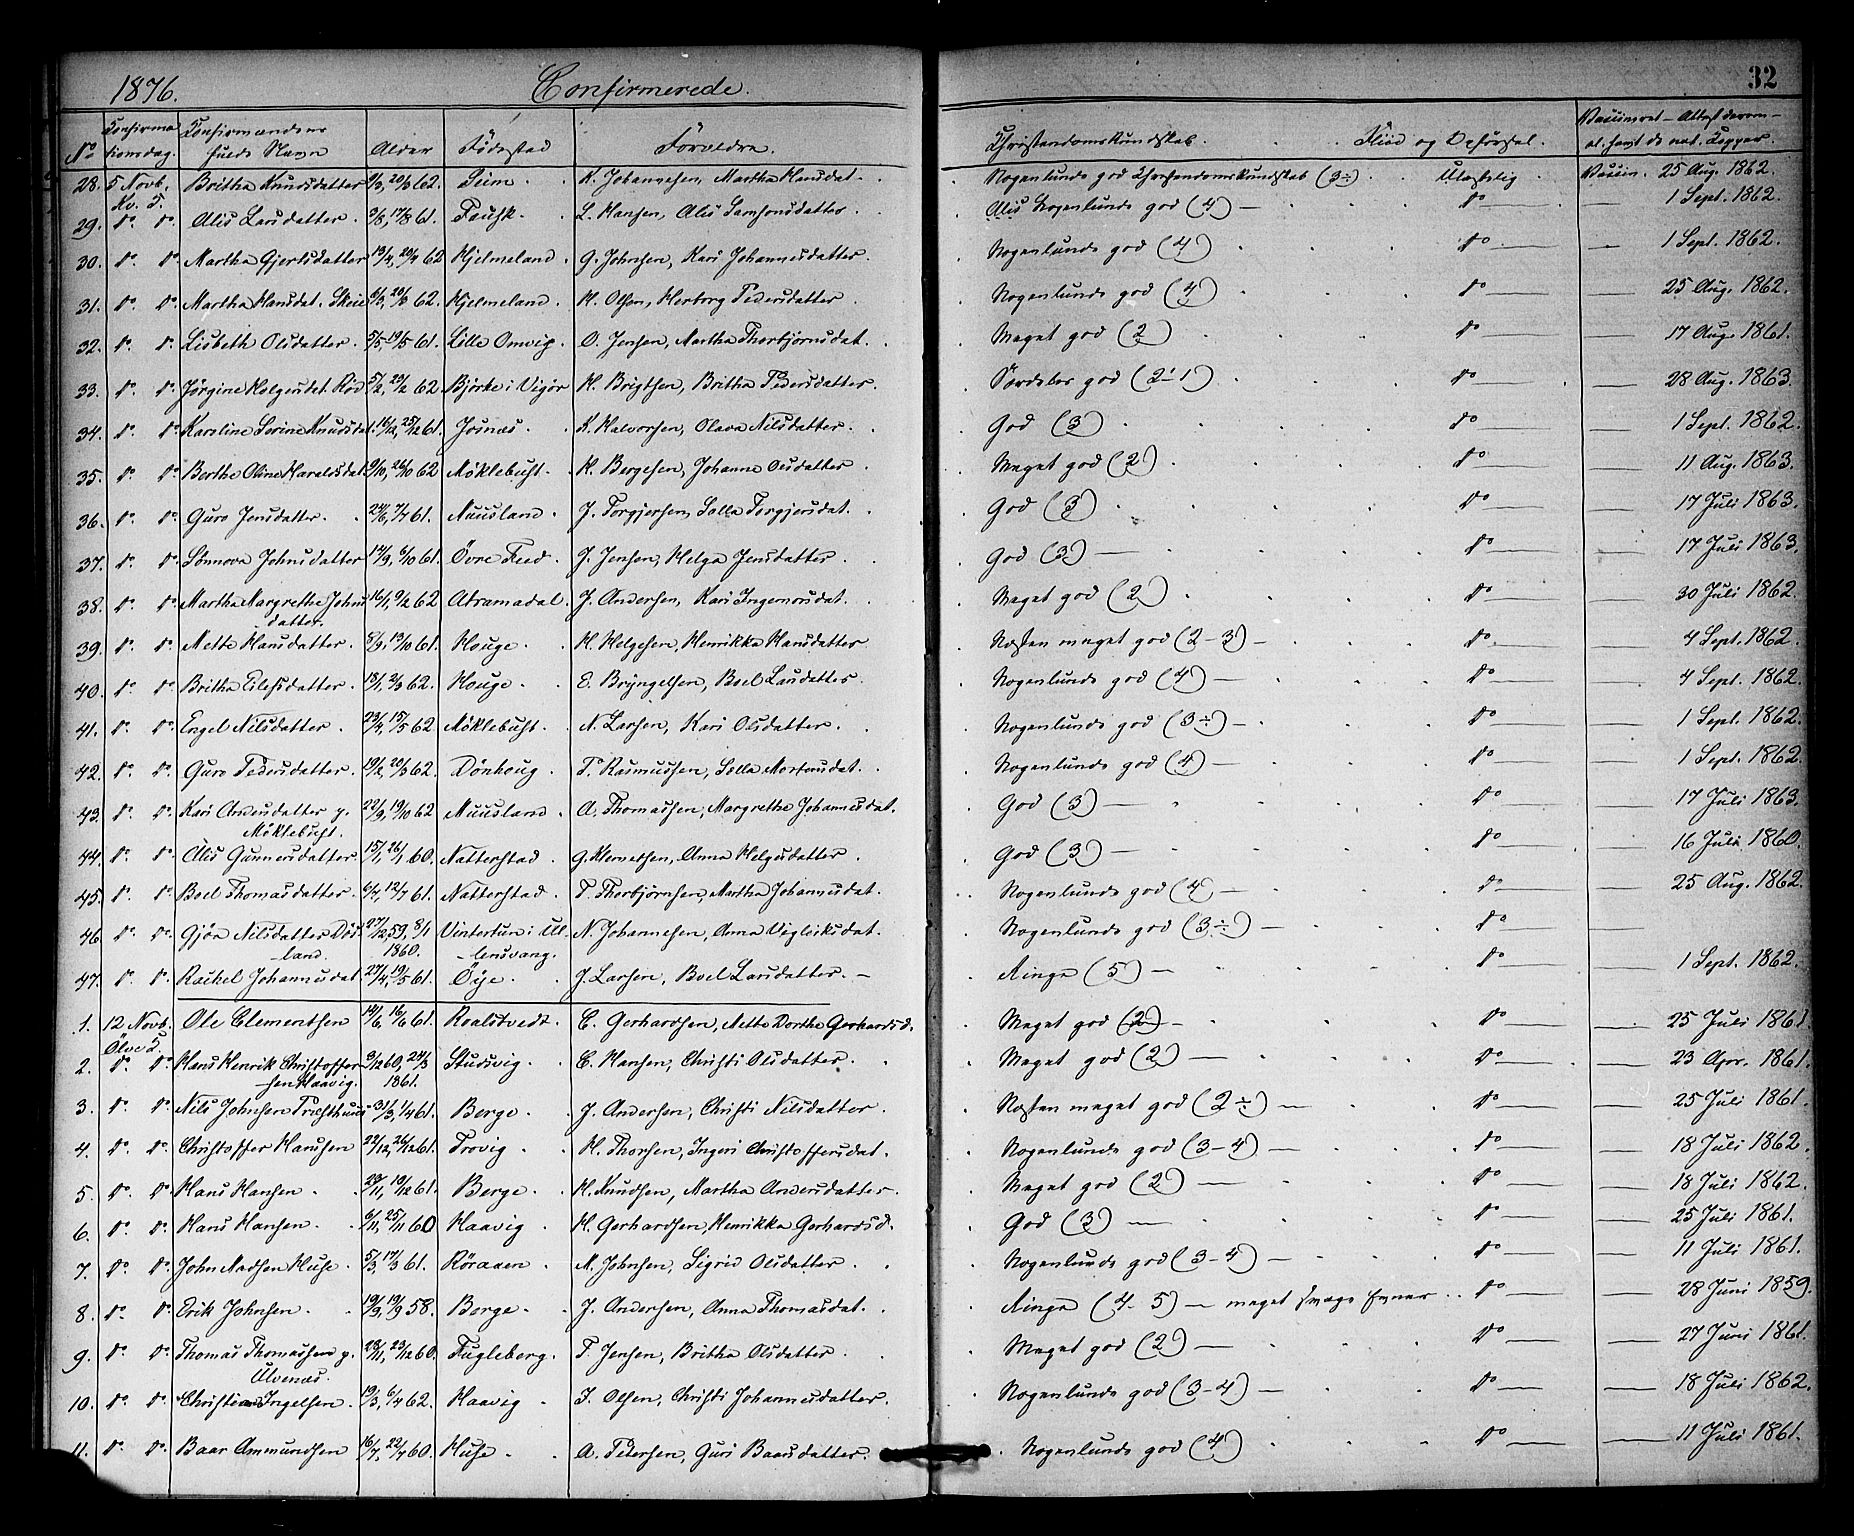 1876. Confirmerede. 32
No Confirmationsdag. Confirmandens fulde Navn Alder Födested Forældre. Christendomskundskab. Flid og Opförsel. Vaccineret - Attest derom
28. 5 Novb. Kv. S. Britha Knudsdatter 9/3, 20/3 62. Seim. K. Johannesen, Martha Hansdat. Nogenlunde god Christendomskundskab (3÷) Ulastelig Vaccin. 25 Aug. 1862.
29. do. do. Alis Larsdatter 9/8, 17/8 61. Fausk. L. Hansen, Alis Samsonsdatter. Nogenlunde god (4) — do — 1 Sept. 1862.
30. do. do. Martha Gjertsdatter 13/4, 20/4 62 Hjelmeland. G. Johnsen, Kari Johannesdatter. Nogenlunde god (4) do — 1 Sept. 1862.
31. do. do. Martha Hansdat. Skeie 6/3, 20/3 62. Hjelmeland. H. Olsen, Herborg Pedersdatter. Nogenlunde god (4) do — 25 Aug. 1862.
32. do. do. Lisbeth Olsdatter. 5/5, 19/5 61. Lille Omvig. O. Jensen, Martha Thorbjörnsdat. Meget god (2) do — 17 Aug. 1861.
33. do. do. Jörgine Helgesdat. Röd 5/2, 23/2 62 Björke i Vigör H. Brigtsen, Britha Pedersdatter. Særdeles god (2-1) do — 28 Aug. 1863.
34. do. do. Karoline Serine Knudsdat. 16/12, 25/12 61. Josnæs. K. Halvorsen, Olava Nilsdatter. God (3) do — 1 Sept. 1862.
35. do. do. Berthe Oline Haraldsdat. 9/10, 26/10 62 Möklebust. H. Bergesen, Johanne Olsdatter Meget god (2) do — 11 Aug. 1863.
36. do. do. Guro Jensdatter. 24/6, 7/7 61. Muusland. J. Torgjersen, Salla Torgjersdat. God (3) do — 17 Juli 1863.
37. do. do. Sönnova Johnsdatter 14/9, 6/10 61. Övre Feed. J. Jensen, Helga Jensdatter. God (3) — do — 17 Juli 1863.
38. do. do. Martha Margrethe Johnsdatter. 16/1, 9/2 62 Adramadal. J. Andersen, Kari Ingemorsdat. Meget god (2) do — 30 Juli 1862.
39. do. do. Mette Hansdatter. 8/9, 13/10 61. Houge. H. Helgesen, Henrikka Hansdatter Næsten meget god (2-3) — do — 4 Sept. 1862.
40. do. do. Britha Eilefsdatter. 13/1, 2/3 62. Houge. E. Bryngelsen, Boel Larsdatter. Nogenlunde god (4) — do — 4 Sept. 1862.
41. do. do. Engel Nilsdatter. 23/4, 15/5 62 Möklebust. N. Larsen, Kari Olsdatter. Nogenlunde god (3÷) — do — 1 Sept. 1862.
42. do. do. Guro Pedersdatter. 19/2, 20/3 62. Dönhoug. P. Rasmussen, Salla Mortensdat. Nogenlunde god (4) — do — 1 Sept. 1862.
43. do. do. Kari Andersdatter p. Möklebust. 22/9, 19/10 62 Muusland. A. Thomassen, Margrethe Johannesdat. God (3) — do — 17 Juli 1863.
44. do. do. Alis Gunnersdatter. 15/1, 26/1 60. Natterstad. G. Wernersen, Anna Helgesdatter. God (3) — do — 16 Juli 1860.
45. do. do. Boel Thomasdatter. 6/7, 12/7 61. Natterstad. T. Thorbjörnsen, Martha Johannesdat. Nogenlunde god (4) — do — 25 Aug. 1862.
46. do. do. Gjöa Nilsdatter Døsland. 27/12 59, 8/1 1860. Vintertun i Ullensvang. N. Johannesen, Anna Vigleiksdat. Nogenlunde god (3÷) — do —
47. do. do. Rachel Johannesdat. 27/4, 19/5 61. Öye. J. Larsen, Boel Larsdatter. — Ringe (5) — do — 1 Sept. 1862.
1. 12 Novb. Ölve S. Ole Clementsen 14/6, 16/6 61. Roaldstvedt. C. Gerhardsen, Mette Dorthe Gerhardsd. Meget god (2) — do — 25 Juli 1861.
2. do. do. Hans Henrik Christoffersen Haavig. 9/12 60, 24/3 1861. Studsvig. C. Hansen, Christi Olsdatter. Meget god (2) — do — 23 Apr. 1861.
3. do. do. Nils Johnsen Præsthuus 31/3, 1/4 61. Berge. J. Andersen, Christi Nilsdatter. Næsten meget god (2÷) — do — 25 Juli 1861.
4. do. do. Christoffer Hansen 22/12, 26/12 61. Trovig. H. Thorsen, Ingeri Christoffersdat. Nogenlunde god (3-4) — do — 18 Juli 1862.
5. do. do. Hans Hansen. 29/11, 19/12 61. Berge. H. Knudsen, Martha Andersdatter. Meget god (2) — do — 18 Juli 1862.
6. do. do. Hans Hansen. 6/11, 25/11 60 Haavig. H. Gerhardsen, Henrikka Gerhardsd. God (3) — do — 25 Juli 1861.
7. do. do. John Madsen Huse. 5/3, 17/3 61. Röraaen. M. Johnsen, Sigrid Olsdatter. Nogenlunde god (3-4) — do — 11 Juli 1861.
8. do. do. Erik Johnsen. 19/9, 19/9 58. Berge. J. Andersen, Anna Thomasdat. Ringe (4-5) — meget svage Evner. do — 28 Juni 1859.
9. do. do. Thomas Thomassen p. Alvenæs. 28/11, 23/12 60. Fugleberg. T. Jensen, Britha Olsdatter. Meget god (2) — do — 27 Juni 1861.
10. do. do. Christian Ingelsen. 19/3, 6/4 62. Haavig I. Olsen, Christi Johannesdatter. Nogenlunde god (3-4) — do — 18 Juli 1862.
11. do. do. Baar Ammundsen 16/7, 22/7 60. Huse. A. Pedersen, Guri Baarsdatter. Nogenlunde god (4) do — 11 Juli 1861.